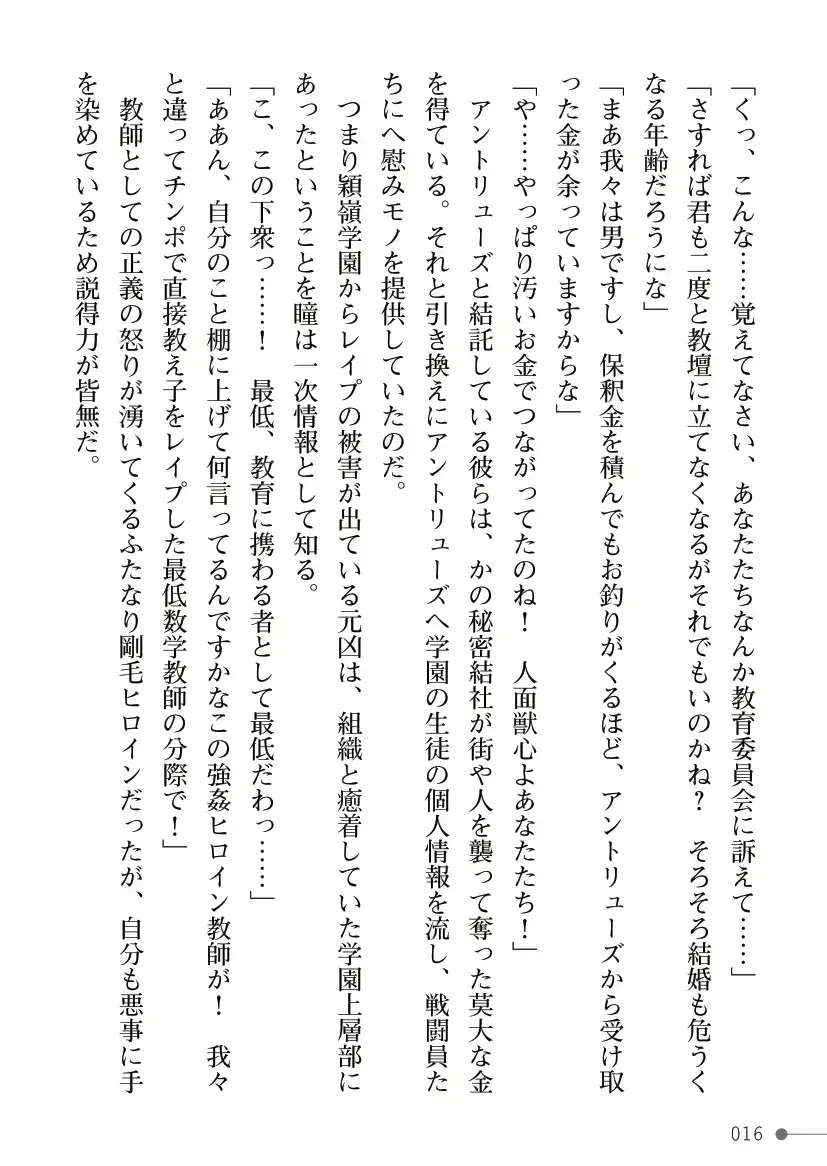 「くっ、こんな……覚えてなさい、あなたたちなんか教育委員会に訴えて……」
「さすれば君も二度と教壇に立てなくなるがそれでもいのかね？　そろそろ結婚も危うく
なる年齢だろうにな」
「まあ我々は男ですし、保釈金を積んでもお釣りがくるほど、アントリューズから受け取
った金が余っていますからな」
「や……やっぱり汚いお金でつながってたのね！　人面獣心よあなたたち！」
　アントリューズと結託している彼らは、かの秘密結社が街や人を襲って奪った莫大な金
を得ている。それと引き換えにアントリューズへ学園の生徒の個人情報を流し、戦闘員た
ちにへ慰みモノを提供していたのだ。
　つまり穎嶺学園からレイプの被害が出ている元凶は、組織と癒着していた学園上層部に
あったということを瞳は一次情報として知る。
「こ、この下衆っ……！　最低、教育に携わる者として最低だわっ……」
「ああん、自分のこと棚に上げて何言ってるんですかなこの強姦ヒロイン教師が！　我々
と違ってチンポで直接教え子をレイプした最低数学教師の分際で！」
　教師としての正義の怒りが湧いてくるふたなり剛毛ヒロインだったが、自分も悪事に手
を染めているため説得力が皆無だ。
016